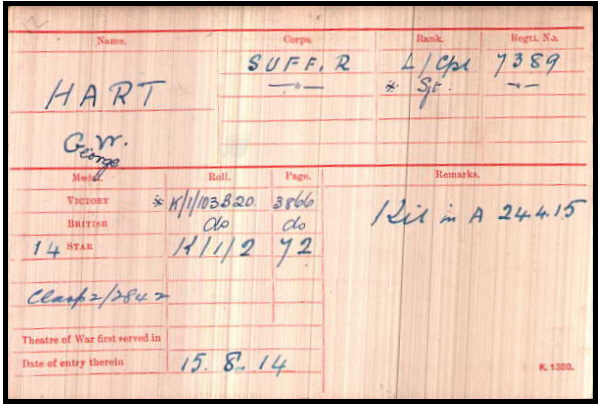 Name. Corps. Rank. Regtl. No.
SUFF. R L/Cpl 7389
HART —〃— * Sjt. —〃—
G.W.
George
Medal. Roll. Page. Remarks.
VICTORY * K/1/103B20. 3866
Kil in A 24.4.15
BRITISH do do
14 STAR K/1/2 72
Clasp 2/2842
Theatre of War first served in
Date of entry therein 15. 8. 14
K. 1380.